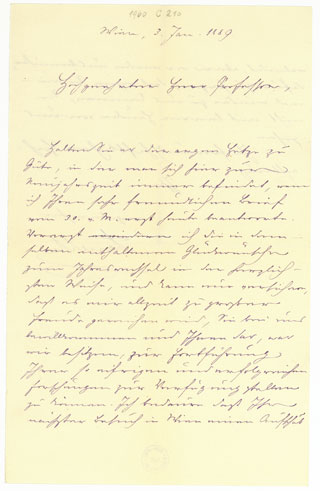 1960 C 210
Wien, 3. Jan. 1889
Hochgeehrter Herr Professor,
Halten Sie es der argen Hetze zu
Gute, in der man sich hier zur
Neujahrszeit immer befindet, wenn
ich Ihren sehr freundlichen Brief
vom 30. v. M. erst heute beantworte.
Vorerst erwiedere ich die in dem
selben enthaltenen Glückwünsche
zum Jahreswechsel in der herzlich-
sten Weise, und kann nur versichern,
daß es mir allzeit zu großer
Freude gereichen wird, Sie bei uns
bewillkommen und Ihnen das, was
wir besitzen, zur Fortführung
Ihrer so eifrigen und erfolgreichen
Forschungen zur Verfügung stellen
zu können. Ich bedaure daß Ihr
nächster Besuch in Wien einen Aufschub